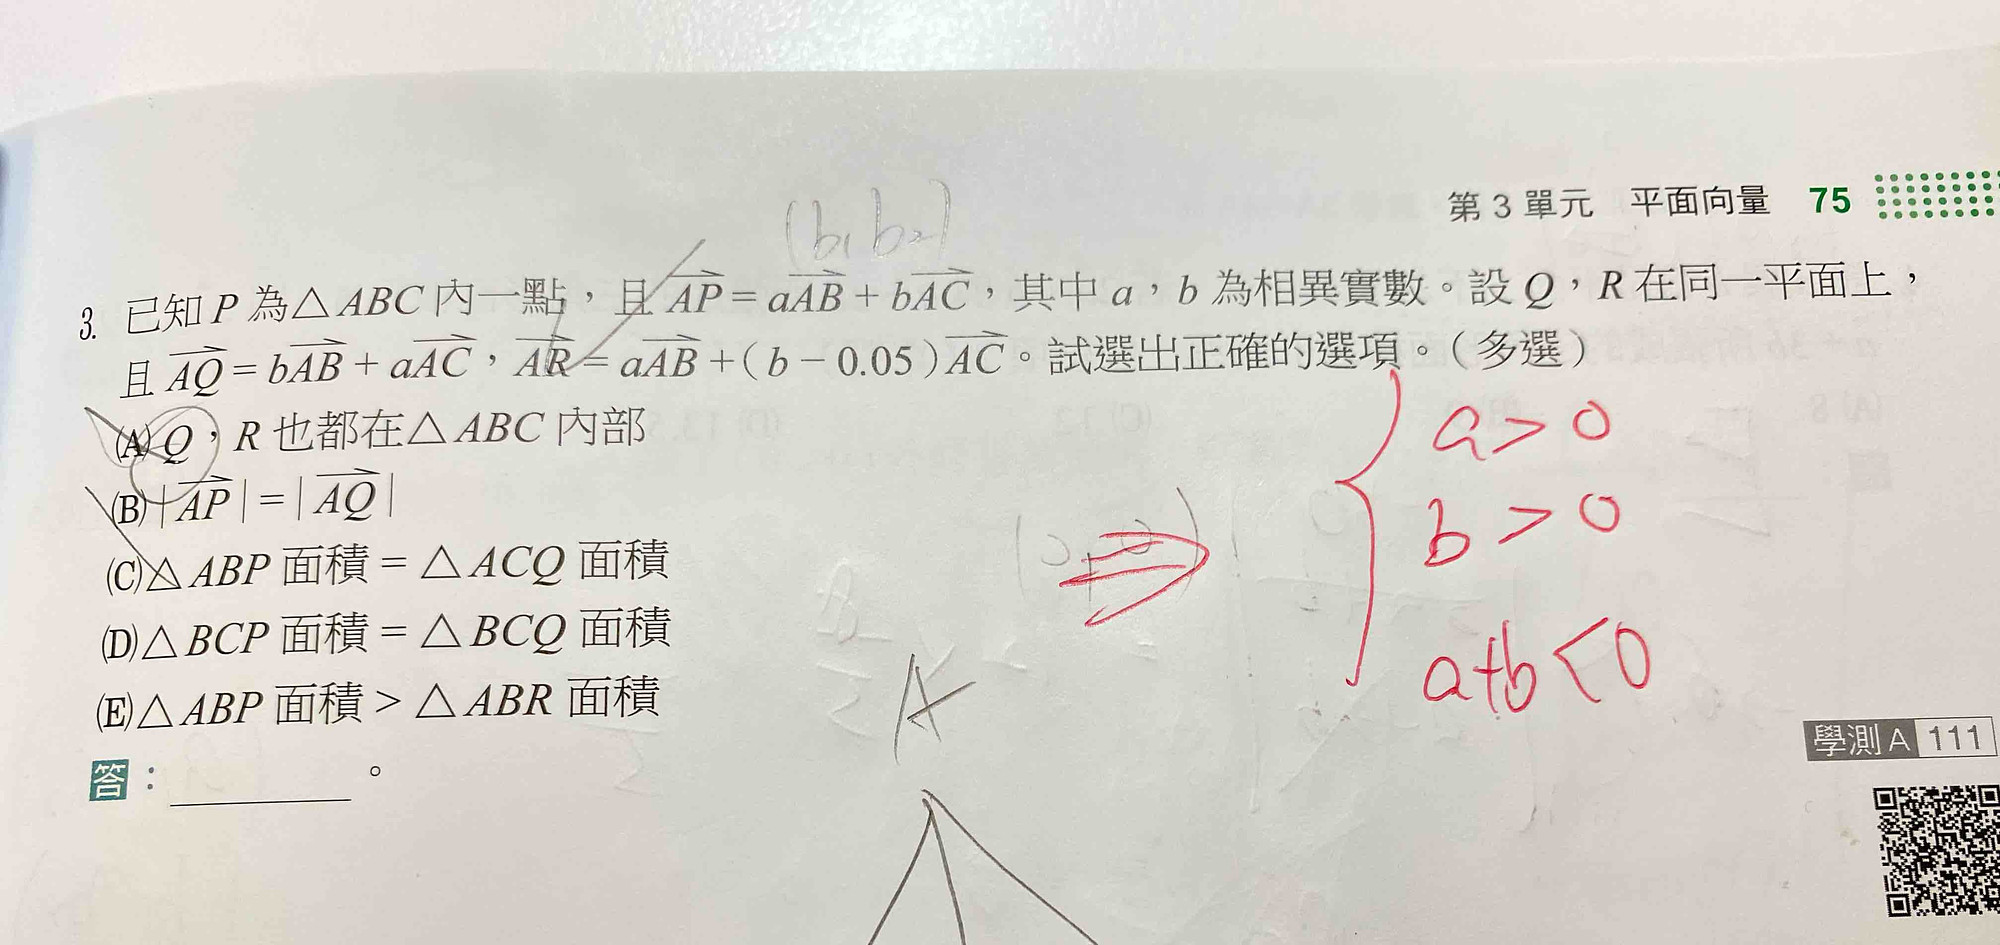 第 3 單元 平面向量 75
(b₁ b₂)
3. 已知 P 為△ABC 內一點，且 AP = aAB + bAC，其中 a，b 為相異實數。設 Q，R 在同一平面上，
且 AQ = bAB + aAC，AR = aAB +（b − 0.05）AC。試選出正確的選項。（多選）
(A) Q，R 也都在△ABC 內部
(B) |AP| = |AQ|
(C)△ABP 面積 = △ACQ 面積
(D)△BCP 面積 = △BCQ 面積
(E)△ABP 面積 > △ABR 面積
a > 0
b > 0
a+b < 0
A
學測 A 111
答：　　。